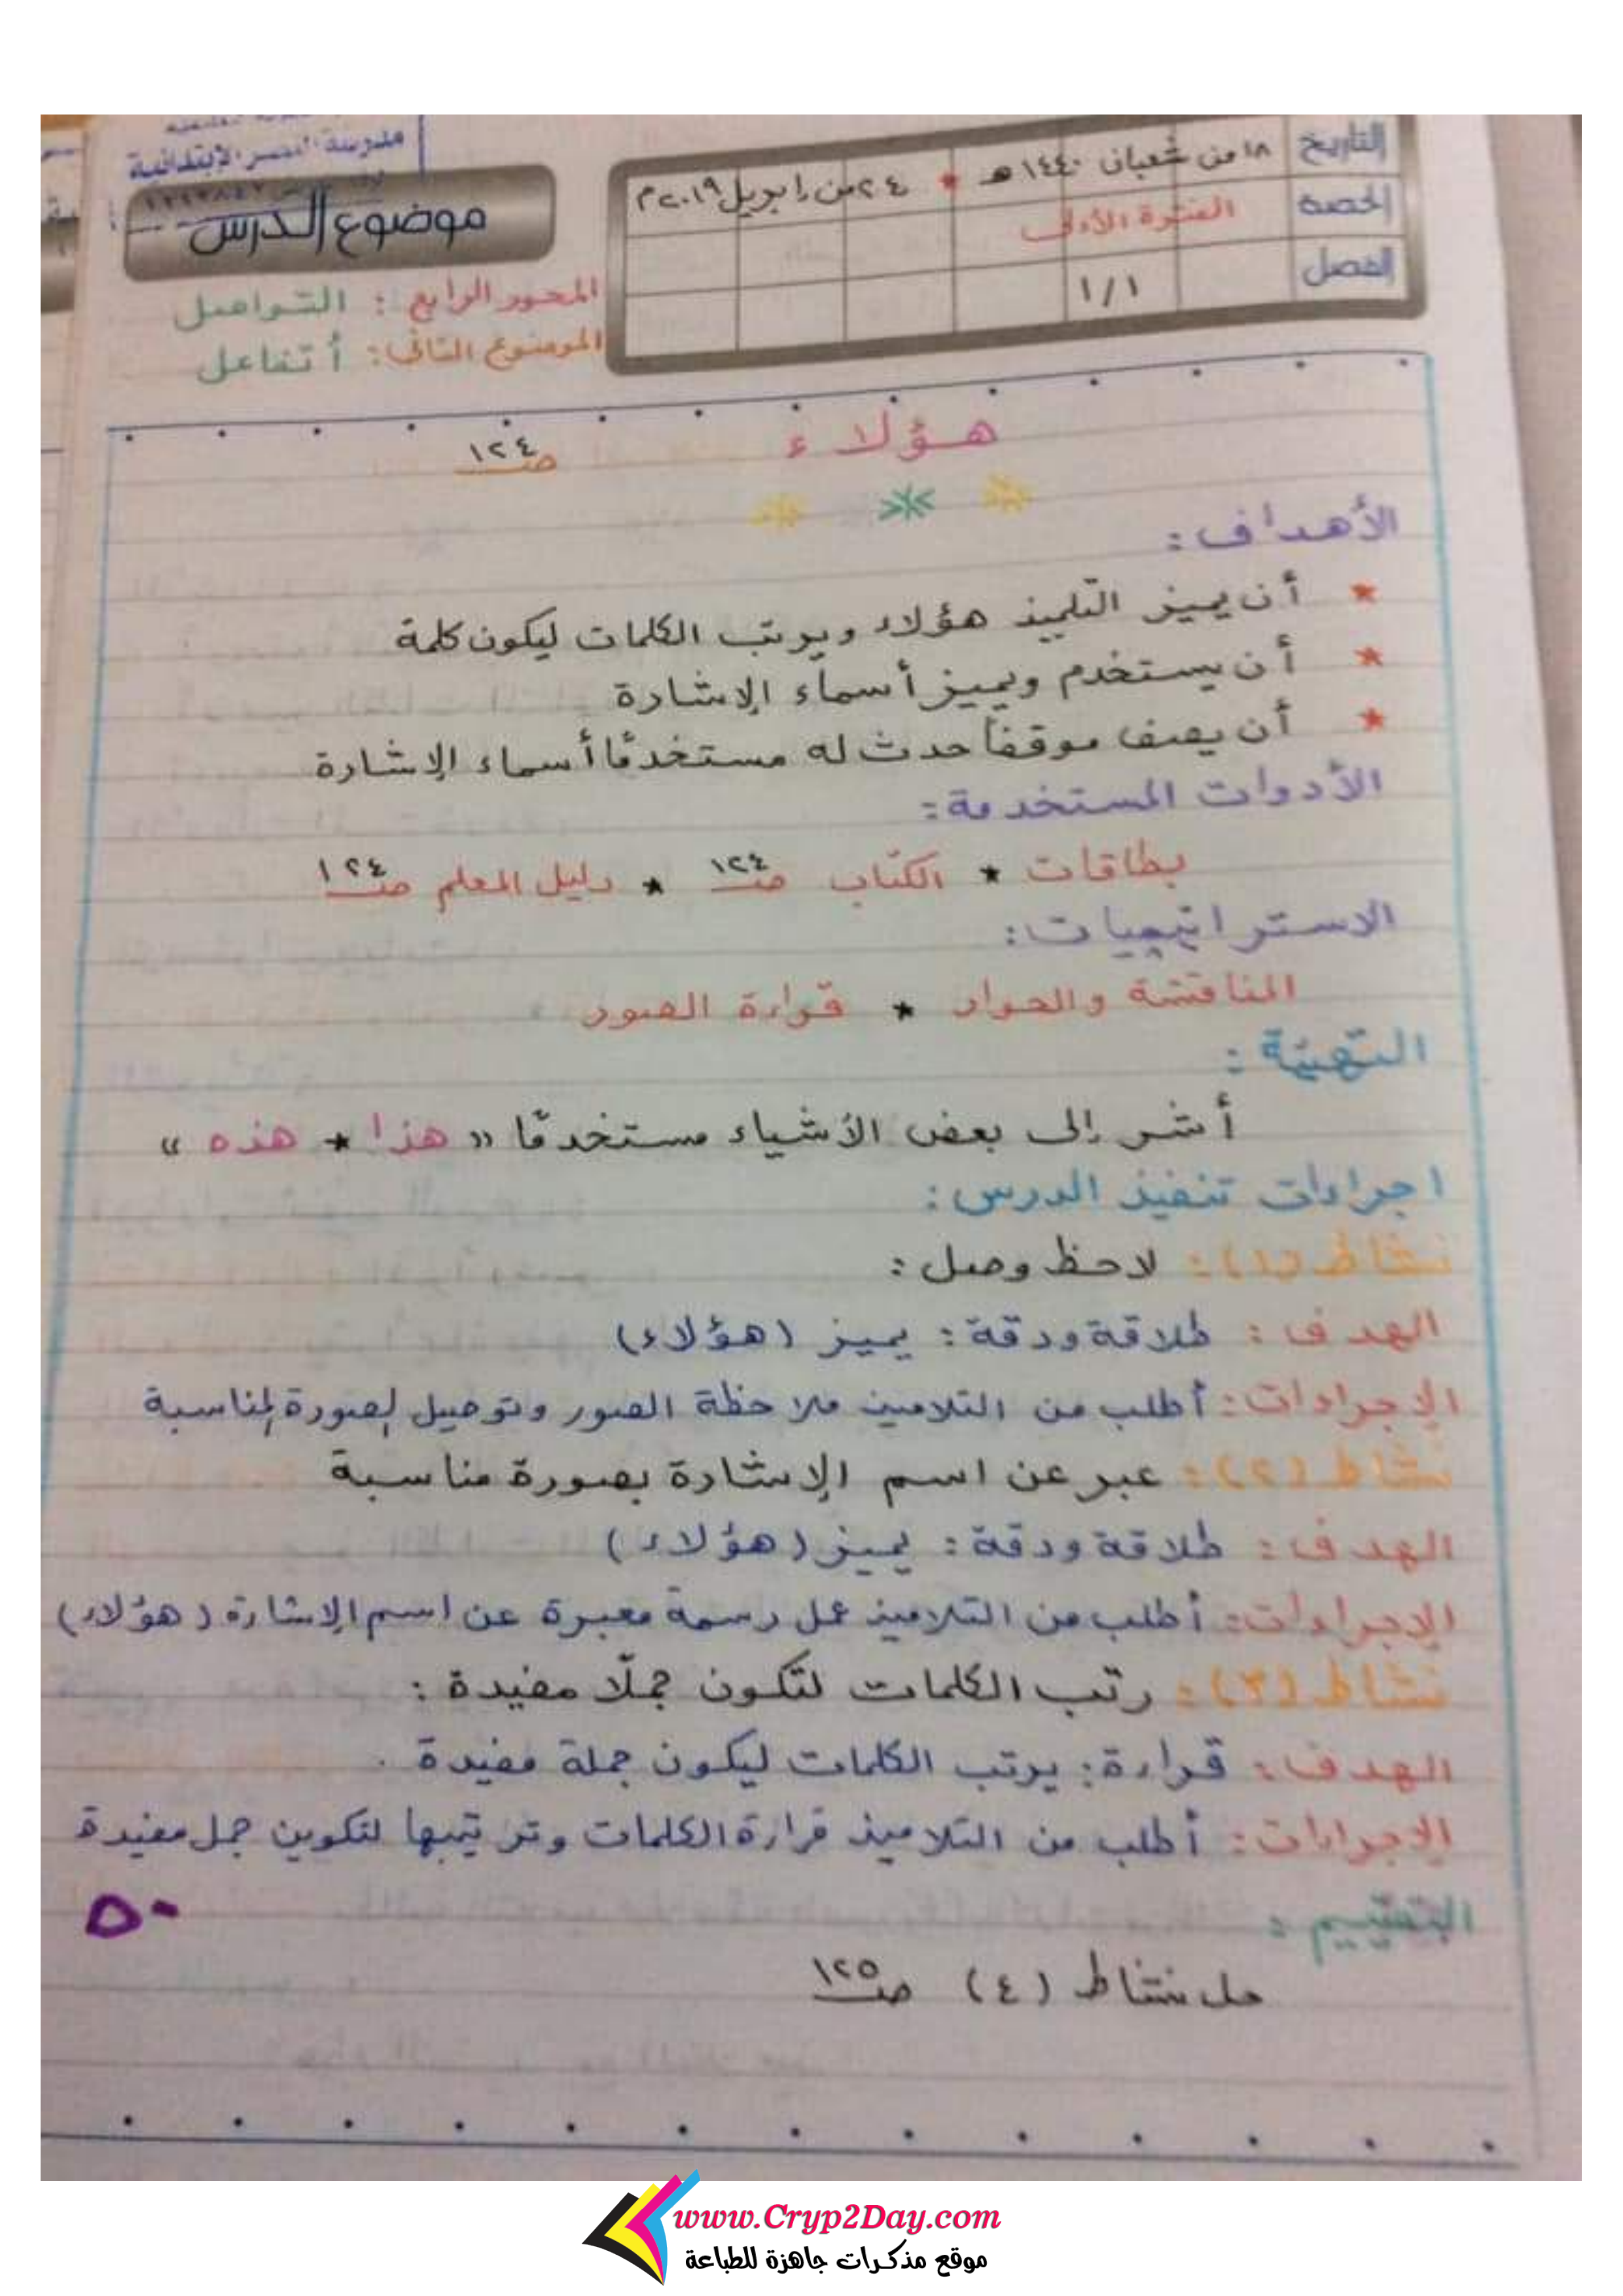 مدرسة النصر الابتدائية
التاريخ ١٨ من شعبان ١٤٤٠ هـ * ٢٤ من إبريل ٢٠١٩ م
الحصة الفترة الأولى
الفصل ١/١
موضوع الدرس
المحور الرابع : التواصل
الموضوع الثاني : أتفاعل
هؤلاء صـ ١٢٤
الأهداف :
* أن يميز التلميذ هؤلاء ويرتب الكلمات ليكون كلمة
* أن يستخدم ويميز أسماء الإشارة
* أن يصف موقفاً حدث له مستخدمًا أسماء الإشارة
الأدوات المستخدمة :
بطاقات * الكتاب صـ ١٢٤ * دليل المعلم صـ ١٢٤
الاستراتيجيات :
المناقشة والحوار * قراءة الصور
التهيئة :
أشر إلى بعض الأشياء مستخدمًا « هذا * هذه »
اجراءات تنفيذ الدرس :
نشاط (١) : لاحظ وصل :
الهدف : طلاقة ودقة : يميز (هؤلاء)
الإجراءات : أطلب من التلاميذ ملاحظة الصور وتوصيل لصورة لمناسبة
نشاط (٢) : عبر عن اسم الإشارة بصورة مناسبة
الهدف : طلاقة ودقة : يميز (هؤلاء)
الإجراءات : أطلب من التلاميذ عمل رسمة معبرة عن اسم الإشارة (هؤلاء)
نشاط (٣) : رتب الكلمات لتكون جملًا مفيدة :
الهدف : قراءة : يرتب الكلمات ليكون جملة مفيدة .
الإجراءات : أطلب من التلاميذ قراءة الكلمات وترتيبها لتكوين جمل مفيدة
التقييم :
٥٠
حل نشاط (٤) صـ ١٢٥
www.Cryp2Day.com
موقع مذكرات جاهزة للطباعة